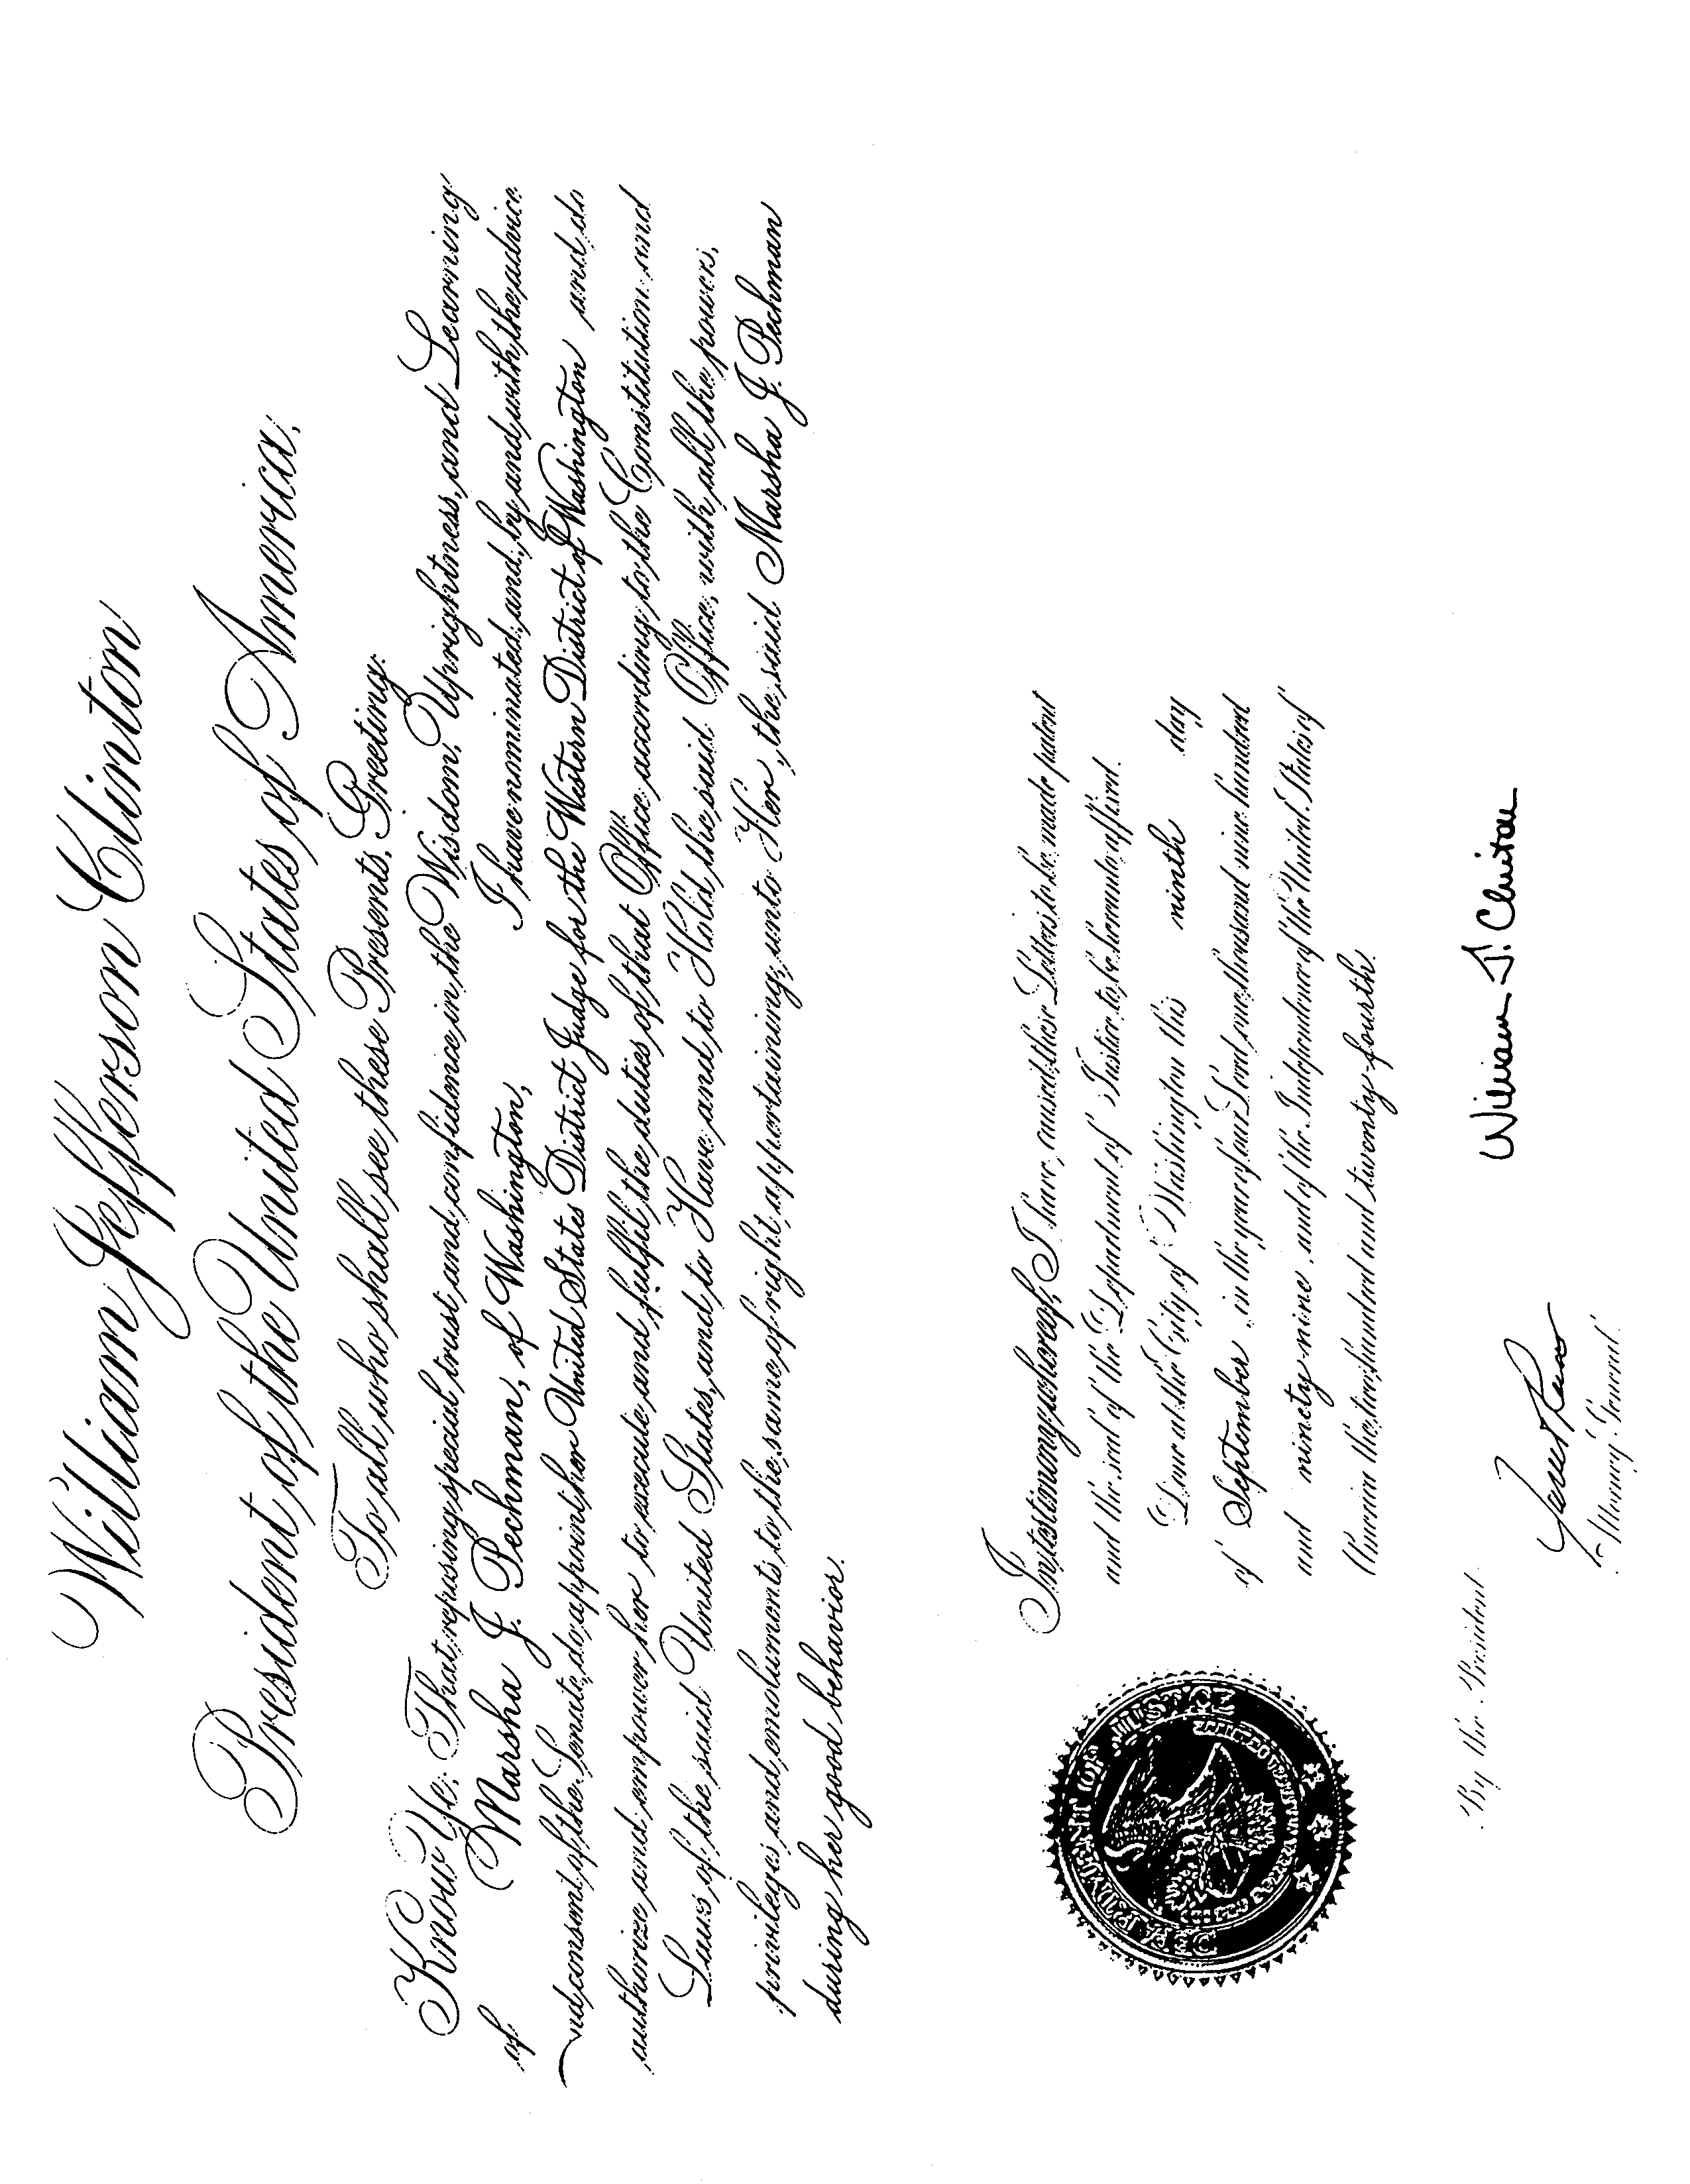 William Jefferson Clinton
President of the United States of America,
To all who shall see these Presents, Greeting:
Know Ye: That reposing special trust and confidence in the Wisdom, Uprightness, and Learning
of Marsha J. Pechman, of Washington, I have nominated, and, by and with the advice
and consent of the Senate, do appoint her United States District Judge for the Western District of Washington and do
authorize and empower her to execute and fulfil the duties of that Office according to the Constitution and
Laws of the said United States, and to Have and to Hold the said Office, with all the powers,
privileges and emoluments to the same of right appertaining, unto Her, the said Marsha J. Pechman
during her good behavior.
In testimony whereof, I have caused these Letters to be made patent
and the seal of the Department of Justice to be hereunto affixed.
Done at the City of Washington this ninth day
of September, in the year of our Lord one thousand nine hundred
and ninety-nine, and of the Independence of the United States of
America the two hundred and twenty-fourth.
DEPARTMENT OF JUSTICE
By the President:
William J. Clinton
Janet Reno
Attorney General.